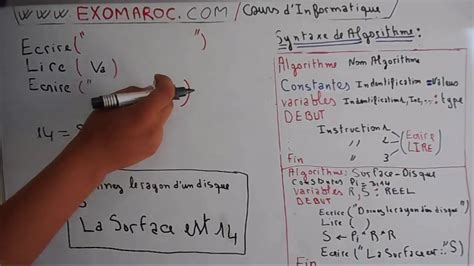 www.EXOMAROC.com/Cours d'Informatique
Ecrire("                    ")
Lire ( Va )
Ecrire("                    )
14 =
nez le rayon d'un disque
La Surface est 14
Syntaxe de Algorithme:
Algorithme Nom Algorithme
Constantes Indentification = Valeurs
variables Indentificateur, In, : type
DEBUT
Instructions
Ecrire
LIRE
Fin
Algorithme: Surface-Disque
Constantes Pi = 3.14
Variables R, S: REEL
DEBUT
Ecrire("Donnez le rayon d'un disque")
Lire (      )
S ← Pi * R * R
Ecrire("La Surface est:", S)
Fin